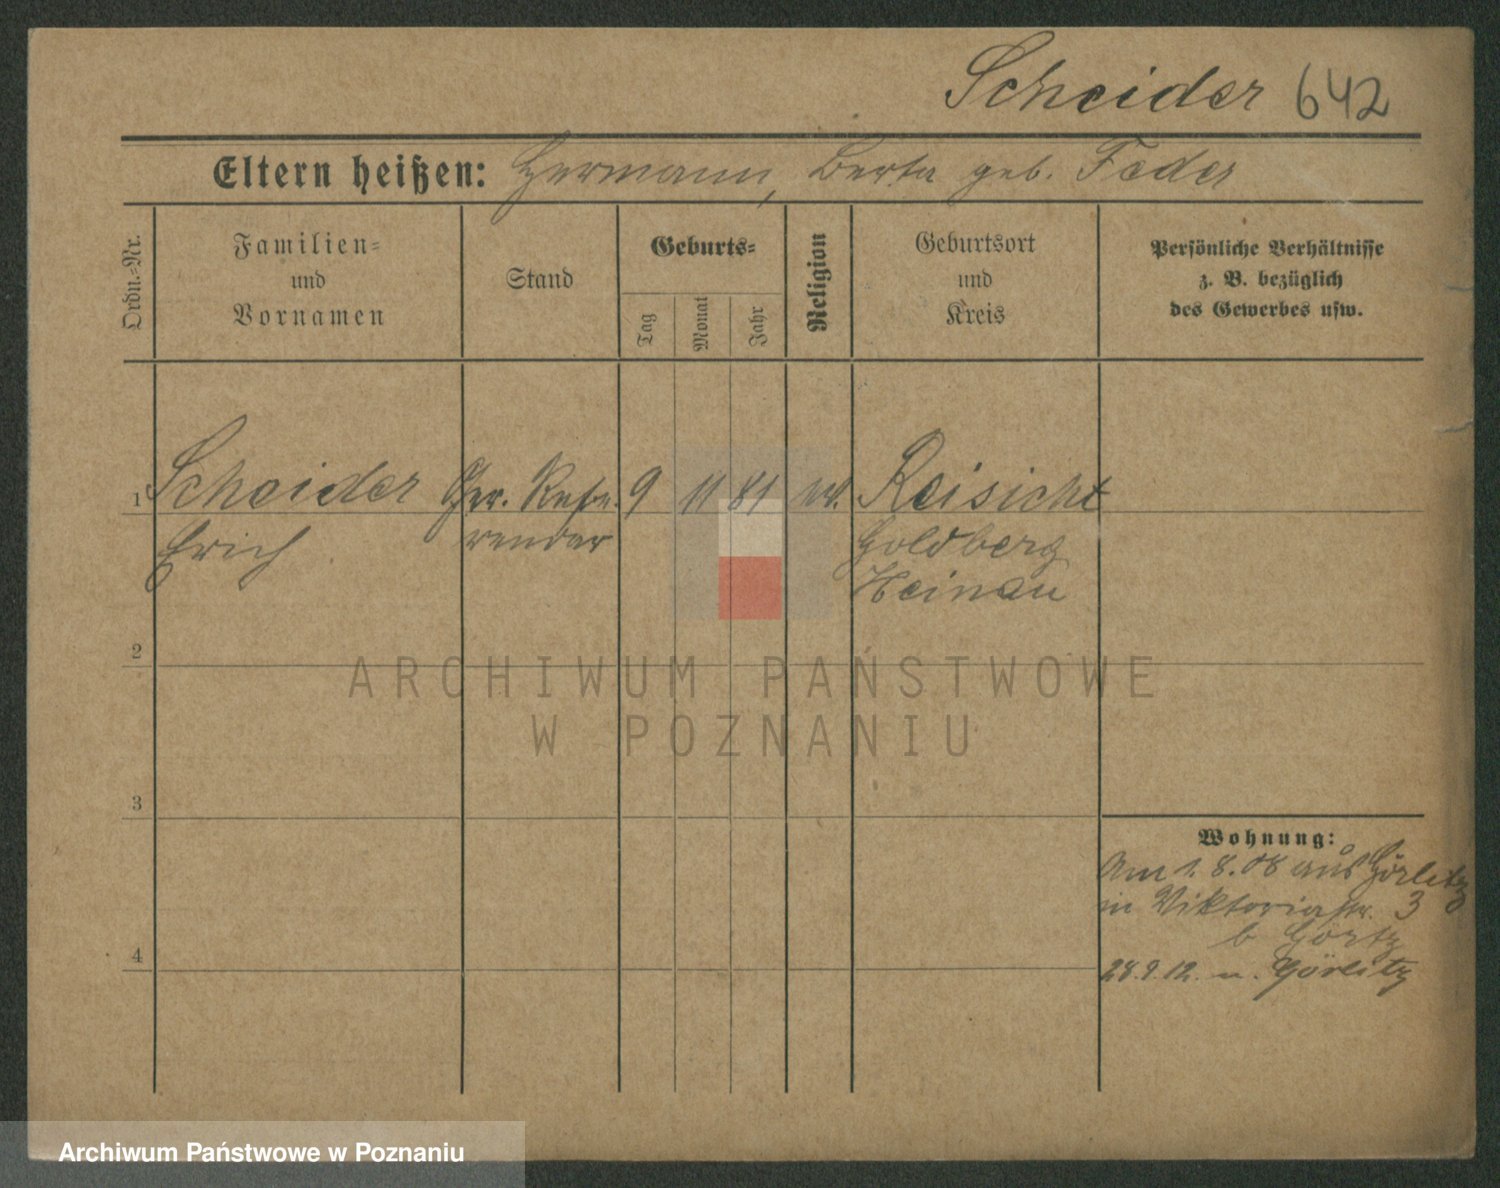 Scheider 642
Eltern heißen: Hermann, Berta geb. Feder
Ordn.-Nr.
Familien-
und
Vornamen
Stand
Geburts-
Tag
Monat
Jahr
Religion
Geburtsort
und
Kreis
Persönliche Verhältnisse
z. B. bezüglich
des Gewerbes usw.
1 Scheider Ger. Refe- 9 11 81 Reisicht
Erich rendar Goldberg
Heinau
2
3
4
Wohnung:
Am 1.8.08 aus Görlitz
in Viktoriastr. 3
b Görtz
28.9.12. n. Görlitz
ARCHIWUM PAŃSTWOWE
W POZNANIU
Archiwum Państwowe w Poznaniu